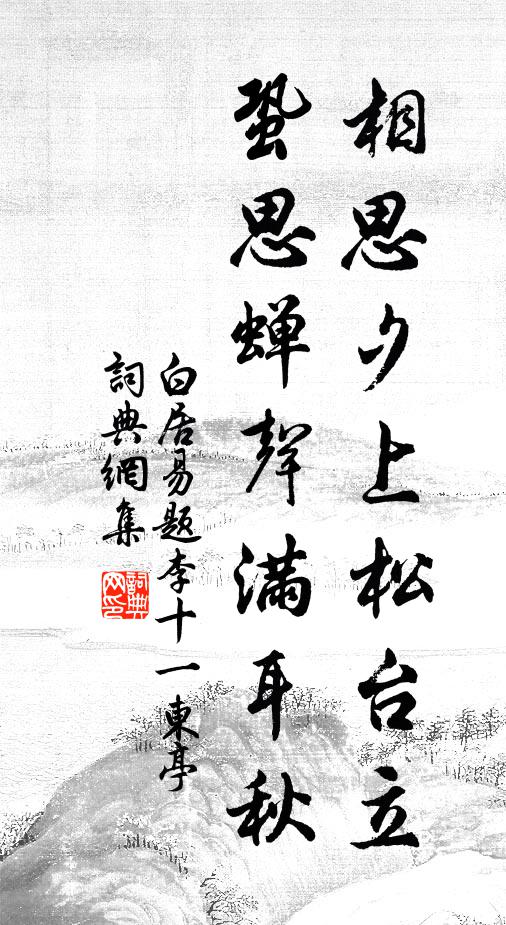 相思夕上松台立
蛩思蝉聲满耳秋
白居易题李十一東亭
詞典網集
詞典
网印